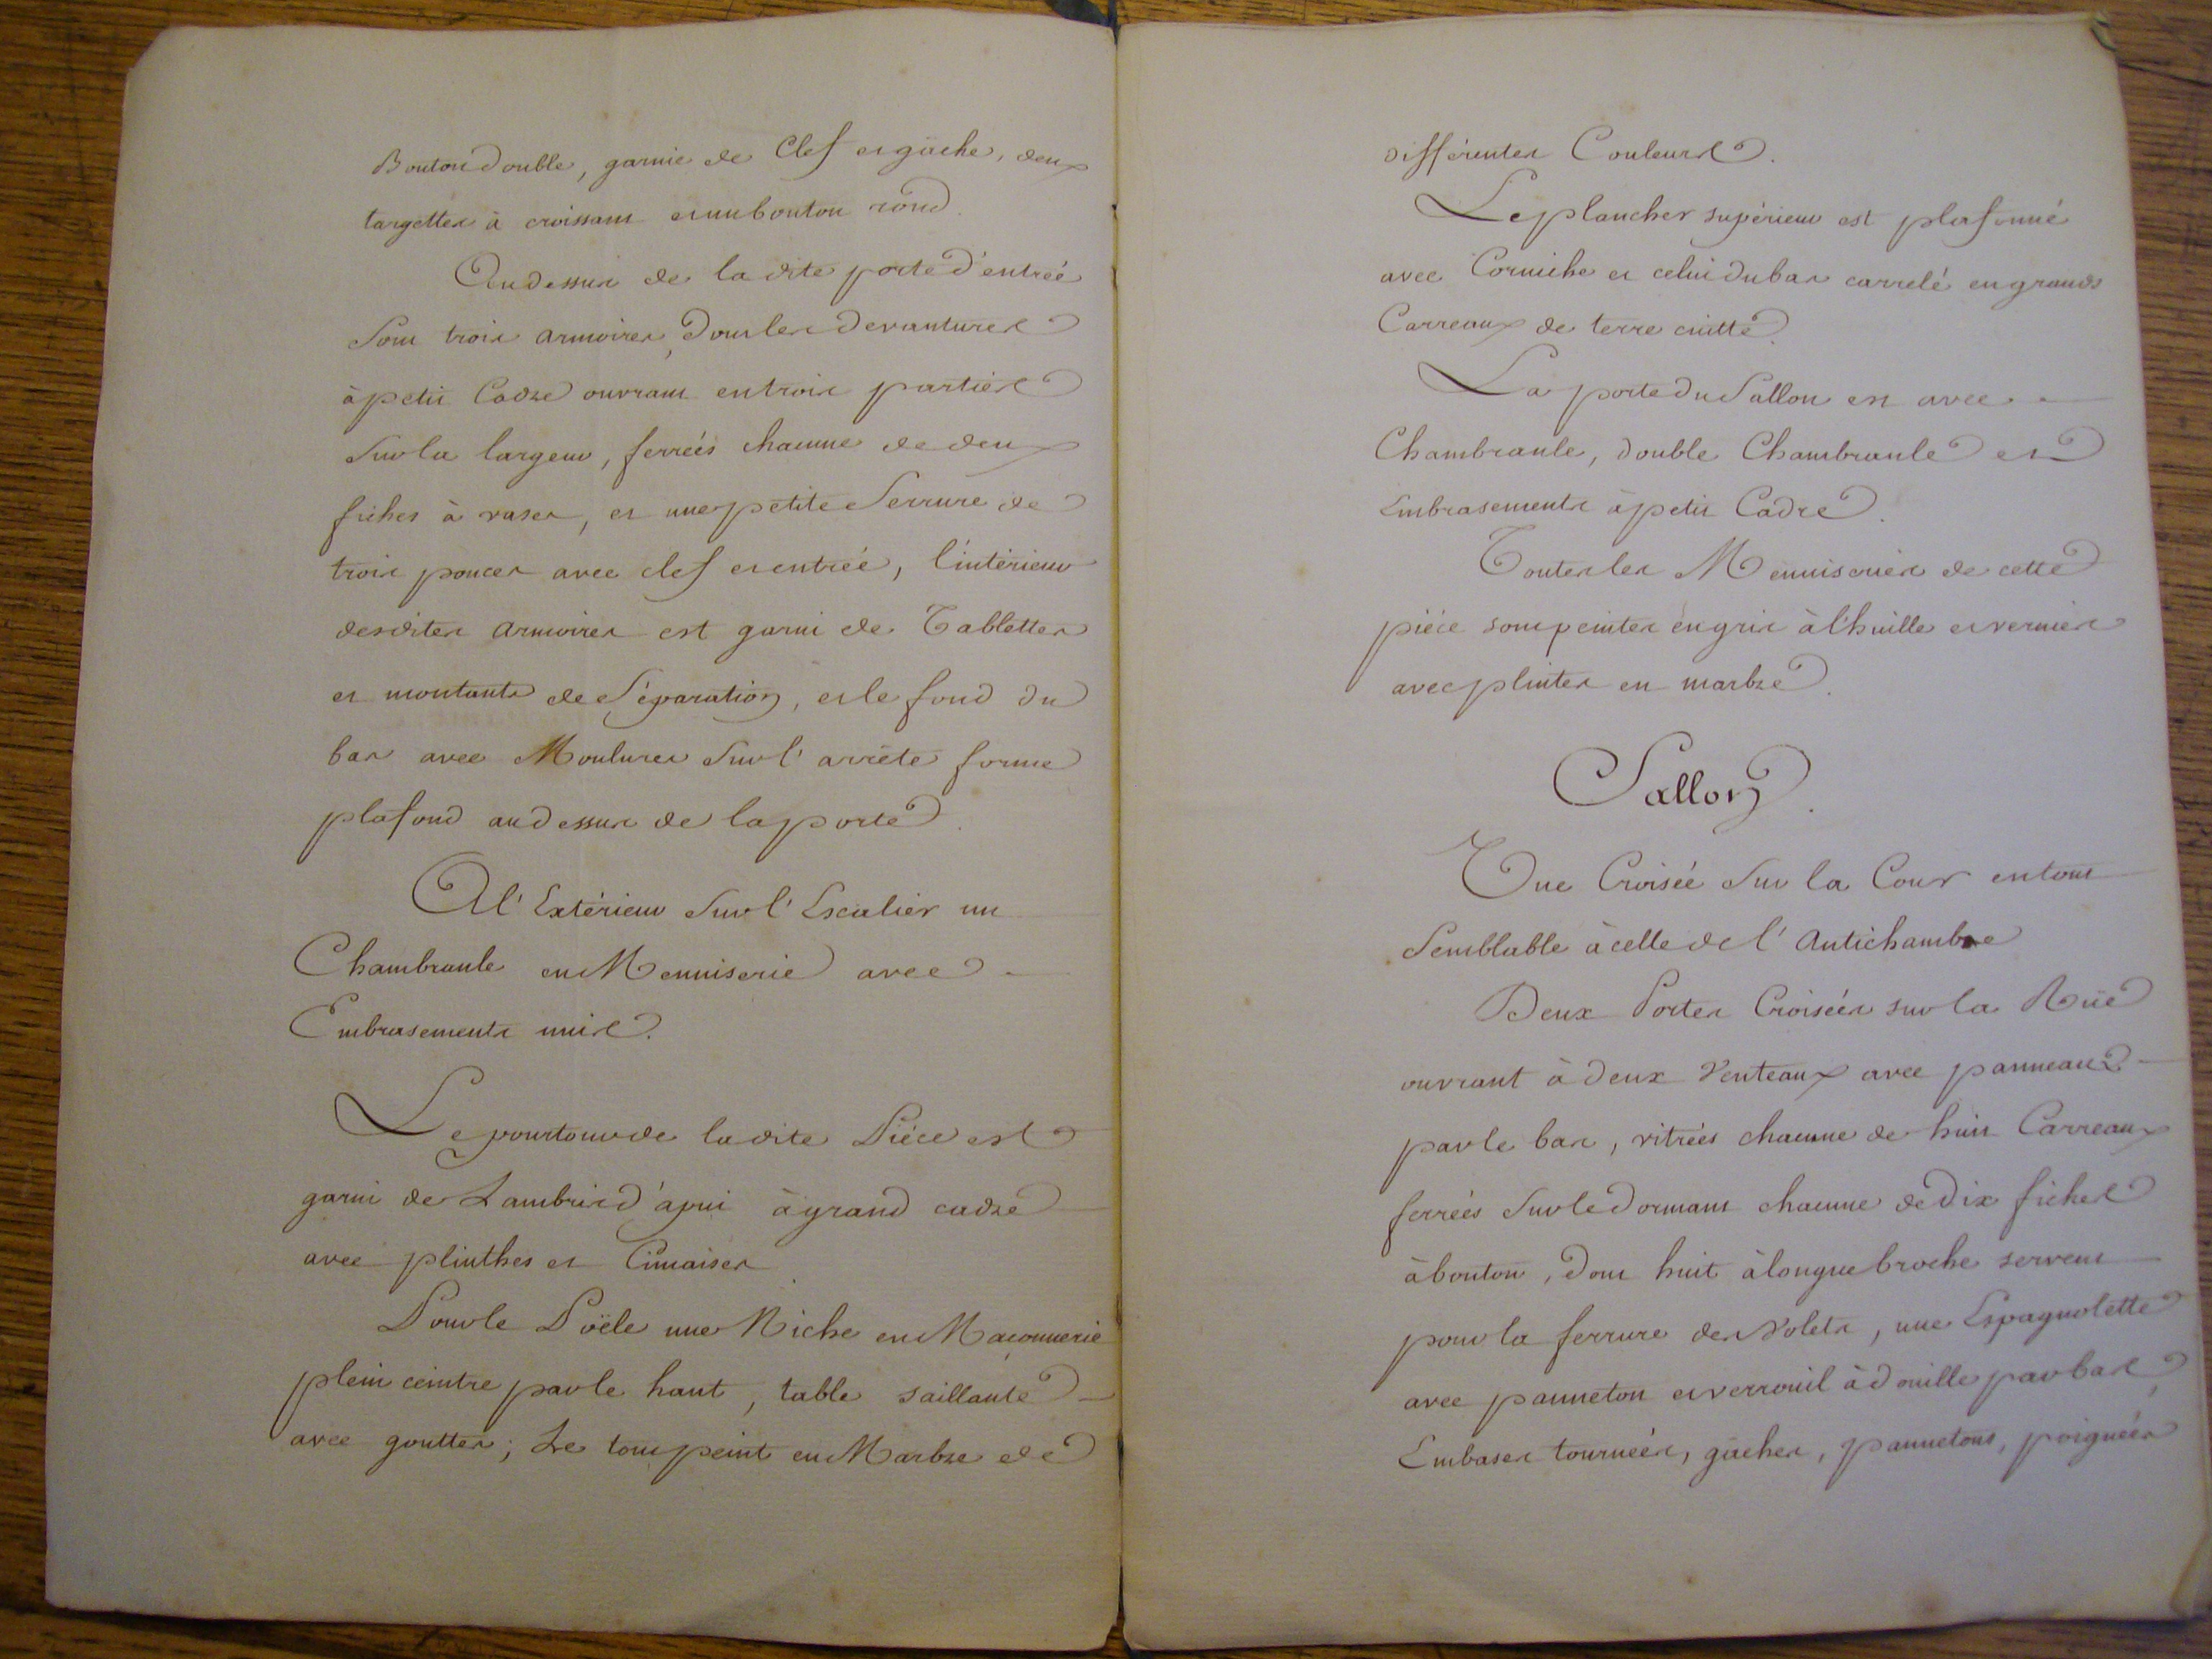 Bouton double, garnie de Clef et gâche, deux
targettes à croissant et un bouton rond.
Audessus de la dite porte d'entrée
Sont trois armoires, dont les devantures
à petit Cadre ouvrant en trois parties
Sur la largeur, ferrées chacune de deux
fiches à vases, et une petite Serrure de
trois pouces avec clef et entrée, l'intérieur
desdites armoires est garni de Tablettes
et montants de Séparation, et le fond du
bas avec Moulures Sur l'arrête forme
plafond audessus de la porte.
A l'Extérieur Sur l'Escalier un
Chambranle en Menuiserie avec
Embrasements unis.
Le pourtour de la dite Piéce est
garni de Lambris d'apui à grand cadre
avec plinthes et Cimaises
Pour le Poële une Niche en Maçonnerie
plein ceintre par le haut, table saillante
avec gouttes; Le tout peint en Marbre de
différentes Couleurs.
Le plancher supérieur est plafonné
avec Corniche et celui du bas carrelé en grands
Carreaux de terre cuitte.
La porte du Sallon est avec
Chambranle, double Chambranle et
Embrasements à petit Cadre.
Toutes les Menuiseries de cette
piéce sont peintes en gris à l'huille et vernies
avec plintes en marbre.
Sallon.
Une Croisée Sur la Cour en tout
Semblable à celle de l'Antichambre
Deux Portes Croisées sur la Rüe
ouvrant à deux Venteaux avec panneaux
par le bas, vitrées chacune de huit Carreaux
ferrées Sur le Dormant chacune de dix fiches
à bouton, dont huit à longue broche servent
pour la ferrure des Volets, une Espagnolette
avec panneton et verrouil à douille par bas,
Embases tournées, gâches, pannetons, poignées